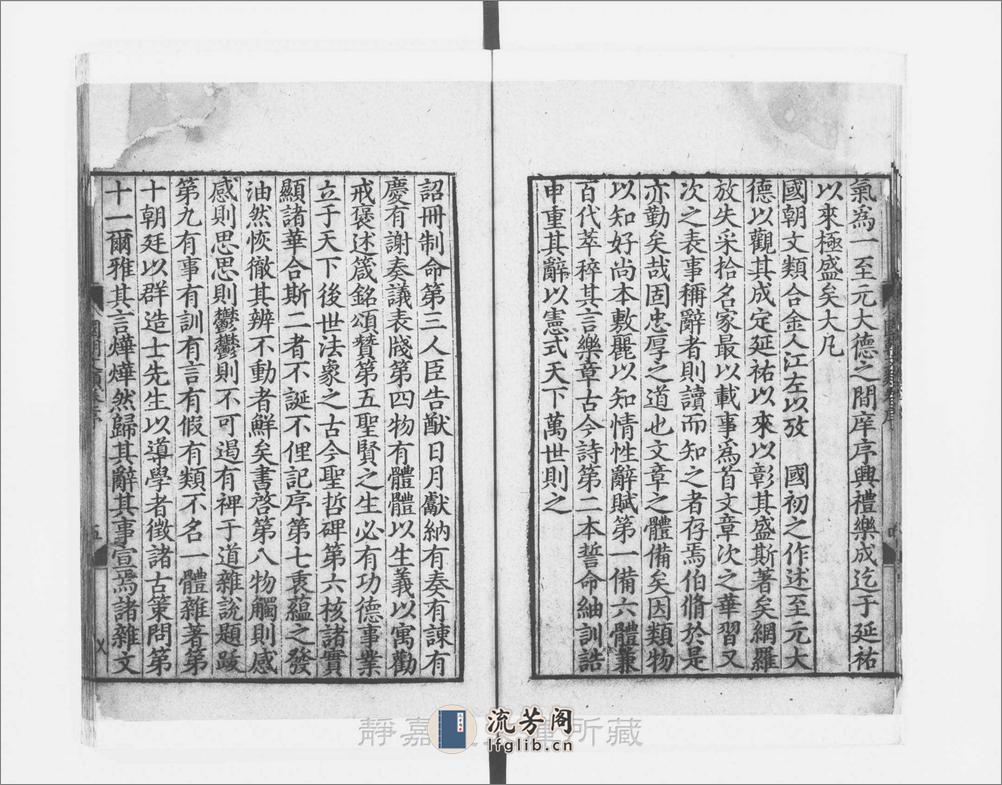 氣為一至元大德之間庠序興禮樂成迄于延祐
以來極盛矣大凡
國朝文類合金人江左以攷　國初之作述至元大
德以觀其成定延祐以來以彰其盛斯著矣網羅
放失采拾名家最以載事為首文章次之華習又
次之表事稱辭者則讀而知之者存焉伯脩於是
亦勤矣哉固忠厚之道也文章之體備矣因類物
以知好尚本敷麗以知情性辭賦第一備六體兼
百代萃稡其言樂章古今詩第二本誓命紬訓誥
申重其辭以憲式天下萬世則之
詔冊制命第三人臣告猷日月獻納有奏有諫有
慶有謝奏議表牋第四物有體體以生義以寓勸
戒褒述箴銘頌贊第五聖賢之生必有功德事業
立于天下後世法象之古今聖哲碑第六核諸實
顯諸華合斯二者不誕不俚記序第七衷蘊之發
油然恢徹其辨不動者鮮矣書啓第八物觸則感
感則思思則鬱鬱則不可遏有裨于道雜說題跋
第九有事有訓有言有假有類不名一體雜著第
十朝廷以群造士先生以導學者徵諸古策問第
十一爾雅其言燁燁然歸其辭其事宣焉諸雜文
五
靜嘉
所藏
流芳阁
lfglib.cn